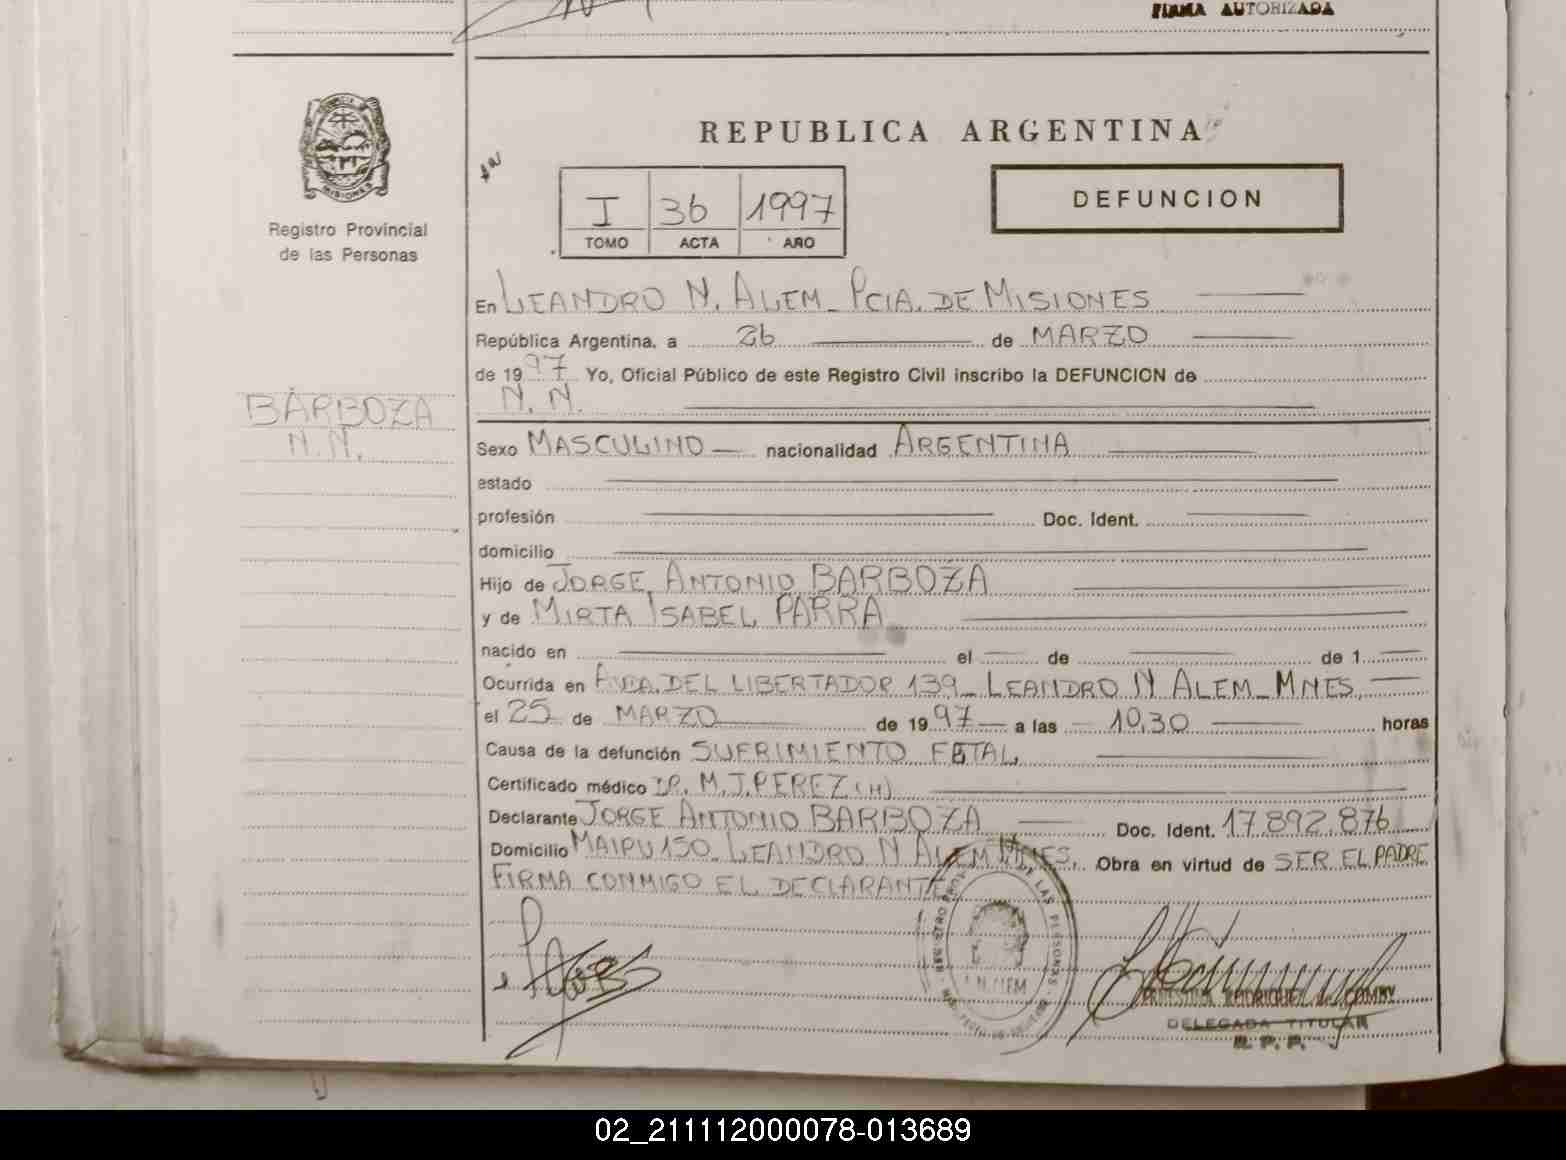 FIRMA AUTORIZADA
PROVINCIA DE
MISIONES
Registro Provincial
de las Personas
BARBOZA
N.N.
REPUBLICA ARGENTINA
I 36 1997
TOMO ACTA AÑO
DEFUNCION
En LEANDRO N. ALEM_ PCIA. DE MISIONES
República Argentina, a 26 de MARZO
de 1997 Yo, Oficial Público de este Registro Civil inscribo la DEFUNCION de
N. N.
Sexo MASCULINO nacionalidad ARGENTINA
estado
profesión Doc. Ident.
domicilio
Hijo de JORGE ANTONIO BARBOZA
y de MIRTA ISABEL PARRA
nacido en el de de 1
Ocurrida en AVDA. DEL LIBERTADOR 139_ LEANDRO N ALEM_ MNES.
el 25 de MARZO de 1997 a las 10,30 horas
Causa de la defunción SUFRIMIENTO FETAL
Certificado médico DR. M. J. PEREZ (H)
Declarante JORGE ANTONIO BARBOZA Doc. Ident. 17.892.876
Domicilio MAIPU 150_ LEANDRO N ALEM MNES. Obra en virtud de SER EL PADRE
FIRMA CONMIGO EL DECLARANTE
DE LAS PERSONAS
L. N. ALEM
ERNESTINA RODRIGUEZ
DELEGADA TITULAR
R. P. P.
02_211112000078-013689